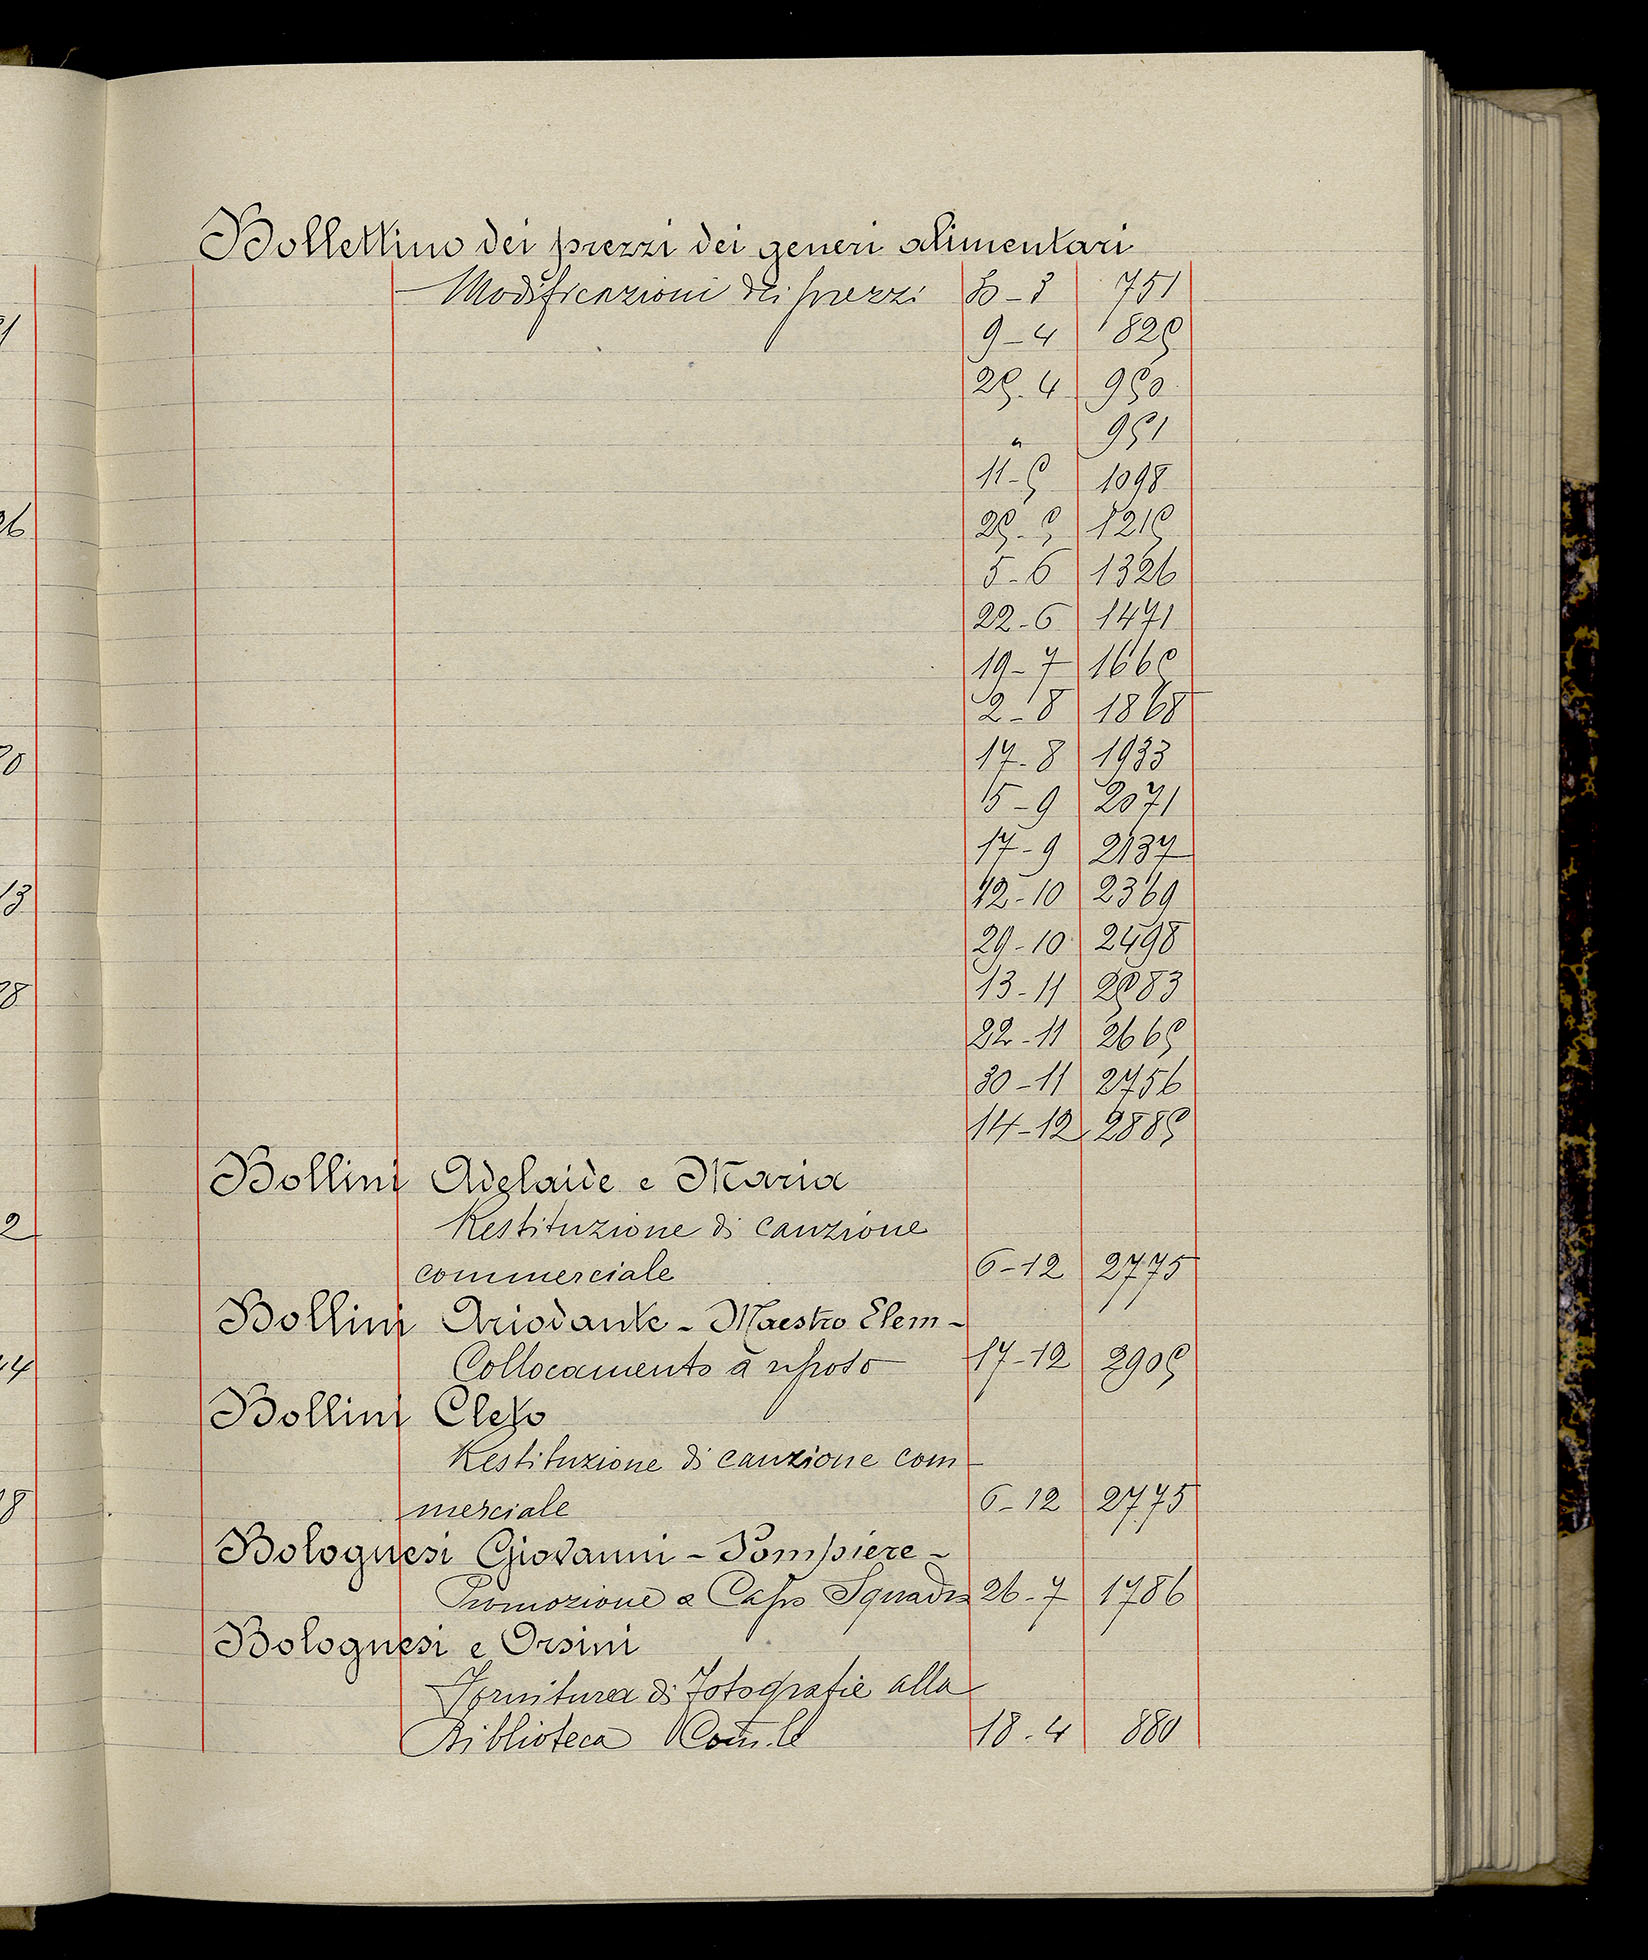 Bollettino dei prezzi dei generi alimentari
Modificazioni dei prezzi 30-3 751
9-4 825
25.4 950
" 951
11-5 1098
25-5 1215
5-6 1326
22-6 1471
19-7 1665
2-8 1868
17-8 1933
5-9 2071
17-9 2137
12-10 2369
29-10 2498
13-11 2583
22-11 2665
30-11 2756
14-12 2885
Bollini Adelaide e Maria
Restituzione di cauzione
commerciale 6-12 2775
Bollini Ariodante - Maestro Elem-
Collocamento a riposo 17-12 2905
Bollini Clefo
Restituzione di cauzione com-
merciale 6-12 2775
Bolognesi Giovanni - Pompiere -
Promozione a Capo Squadra 26-7 1786
Bolognesi e Orsini
Fornitura di fotografie alla
Biblioteca Com.le 18-4 880